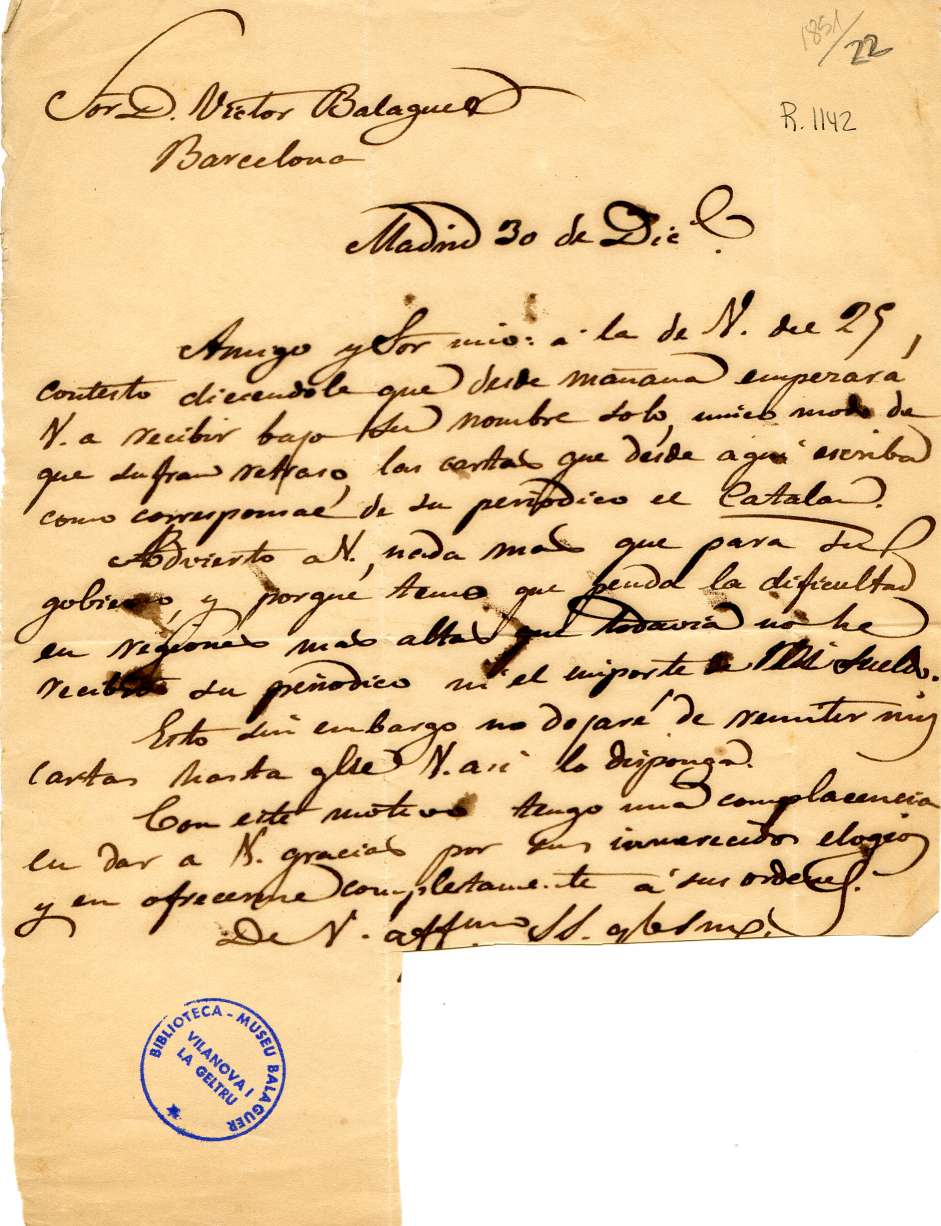 1851/22
R. 1142
Sor D. Victor Balaguer
Barcelona
Madrid 30 de Dice.
Amigo y Sor mio: a la de V. del 25,
contesto diciendole que desde mañana empezará
V. a recibir bajo su nombre solo, unico modo de
que sufran retraso, las cartas que desde aqui escriba
como corresponsal de su periódico el Catalan.
Advierto a V., nada mas que para su
gobierno, y porque temo que penda la dificultad
en regiones mas altas que todavia no he
recibido su periodico ni el importe de mi sueldo.
Esto sin embargo no dejaré de remitir mis
cartas hasta que V. asi lo disponga.
Con este motivo tengo una complacencia
en dar a V. gracias por sus inmerecidos elogios
y en ofrecerme completamente á sus ordenes.
De V. affmo SS. q b s m.
BIBLIOTECA - MUSEU BALAGUER
VILANOVA I
LA GELTRU